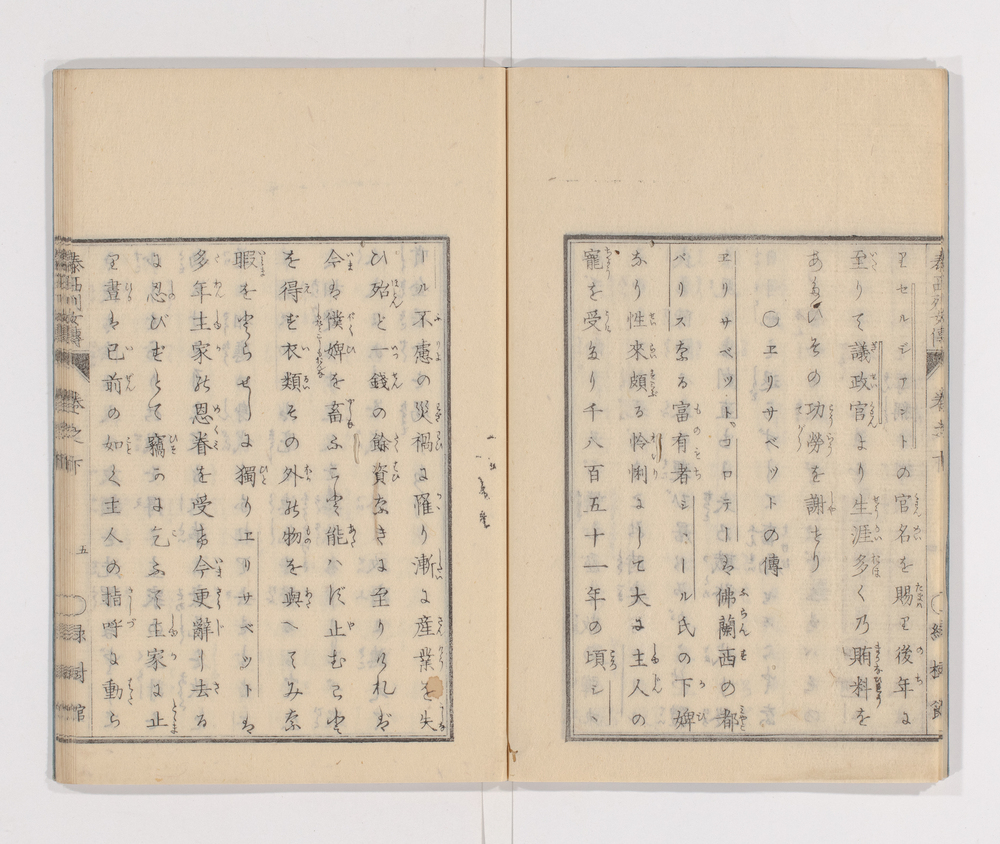 ヱセルシアントの官名を賜ヱ後年に
至りて議政官より生涯多く乃賄料を
あたひその功勞を謝せり
○エリサベットの傳
エリサベット、コロテーは佛蘭西の都
パリスなる富有者シ、ール氏の下婢
なり性來頗る怜悧にして大に主人の
寵を受たり千八百五十一年の頃シ、
ール不慮の災禍に罹り漸に産業を失
ひ殆ど一錢の餘資なきに至りければ
今は僕婢を畜ふこと能はず止むこと
を得ず衣類その外の物を與へてみな
暇をとらせしに獨りエリサベットは
多年主家の恩眷を受け今更辭り去る
に忍びずとて竊かに乞ふて主家に止
り盡は已前の如く主人の指呼に動ら
泰西列女傳 卷之下
五